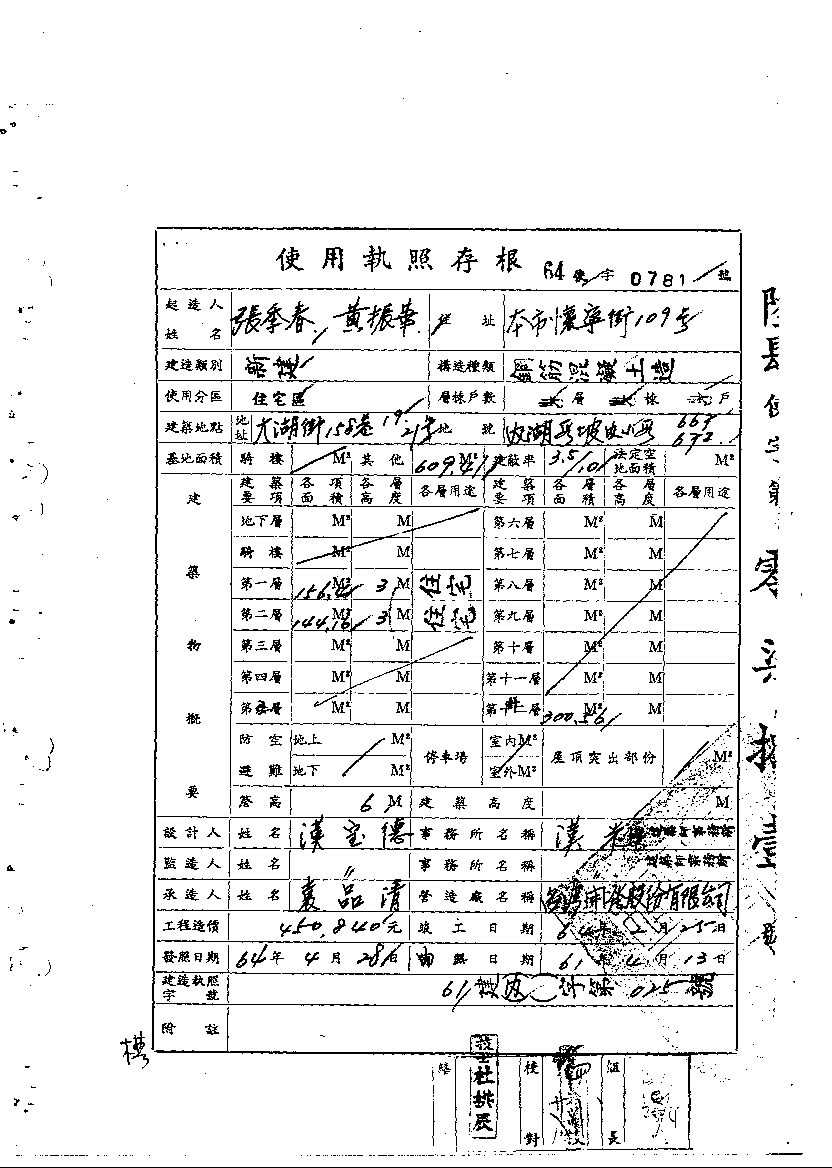 使用執照存根 64 使字 0781 號
起造人姓名 張季春 黃振華 住址 本市懷寧街109号
建造類別 新建 構造種類 鋼筋混凝土造
使用分區 住宅區 層棟戶數 層 棟 戶
建築地點 地址 大湖街158巷19 21号 地號 內湖 667 672
基地面積 騎樓 M² 其他 609.41 M² 建蔽率 3.5/10 法定空地面積 M²
建築物概要 建築要項 各項面積 各層高度 各層用途 建築要項 各層面積 各層高度 各層用途
地下層 M² M 第六層 M² M
騎樓 M² M 第七層 M² M
第一層 156.4 M² 3 M 住宅 第八層 M² M
第二層 144.16 M² 3 M 住宅 第九層 M² M
第三層 M² M 第十層 M² M
第四層 M² M 第十一層 M² M
第 層 M² M 第 層 300.56 M² M
防空避難 地上 M² 地下 M² 停車場 室內M² 室外M² 屋頂突出部份 M²
簷高 6 M 建築高度 M
設計人 姓名 漢寶德 事務所名稱 漢 建築師事務所
監造人 姓名 〃 事務所名稱 建築師事務所
承造人 姓名 袁品清 營造廠名稱 台灣開發股份有限公司
工程造價 450,840元 竣工日期 64年2月25日
發照日期 64年4月28日 申請日期 61年4月13日
建造執照字號 61建 字第025號
附註
校對
組長
杜拱辰
使字第零柒捌壹號